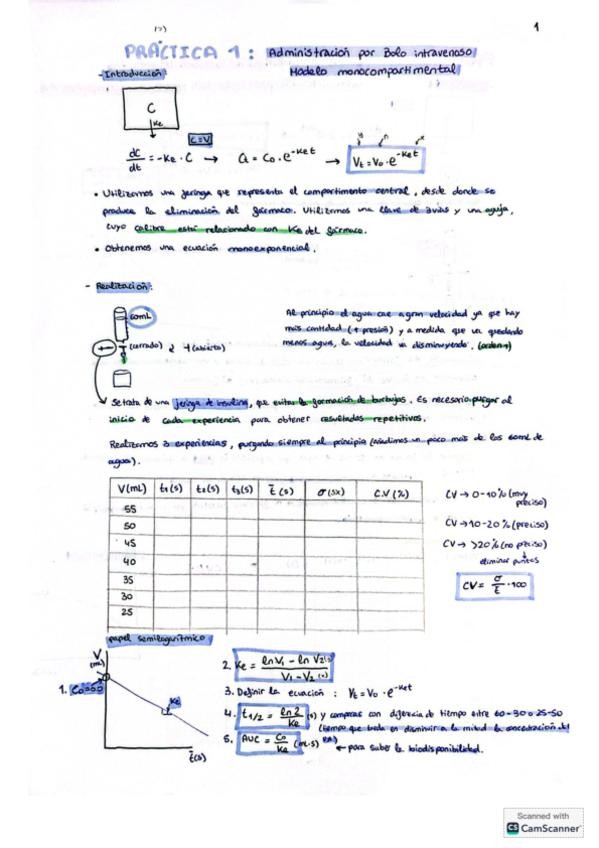 1
PRÁCTICA 1: Administración por Bolo intravenoso
Modelo monocompartimental
- Introducción:
C
Ke
C=V
dC/dt = -Ke · C → Ct = C0 · e^-Ket → Vt = V0 · e^-Ket
• Utilizamos una jeringa que representa el compartimento central, desde donde se
produce la eliminación del fármaco. Utilizamos una llave de 3 vías y una aguja,
cuyo calibre está relacionado con Ke del fármaco.
• Obtenemos una ecuación monoexponencial.
- Realización:
60mL
(cerrado) (abierto)
Al principio el agua cae a gran velocidad ya que hay
más cantidad (↑ presión) y a medida que va quedando
menos agua, la velocidad va disminuyendo. (orden 1)
Se trata de una jeringa de insulina, que evita la formación de burbujas. Es necesario purgar al
inicio de cada experiencia para obtener resultados repetitivos.
Realizamos 3 experiencias, purgando siempre al principio (añadimos un poco más de los 60mL de
agua).
V(mL) t1(s) t2(s) t3(s) t̄(s) σ(sx) C.V(%)
55
50
45
40
35
30
25
CV → 0-10% (muy
preciso)
CV → 10-20% (preciso)
CV → >20% (no preciso)
eliminar puntos
CV = σ/t̄ · 100
papel semilogarítmico
V
(mL)
1.
Ke
t̄(s)
2. Ke = lnV1 - lnV2 / V1 - V2
3. Definir la ecuación: Vt = V0 · e^-Ket
4. t1/2 = ln2/Ke (s) y comparas con diferencia de tiempo entre 60-30 o 25-50
(tiempo que tarda en disminuir a la mitad la concentración del
5. AUC = C0/Ke (mL·s) ← para saber la biodisponibilidad.
Scanned with
CS CamScanner